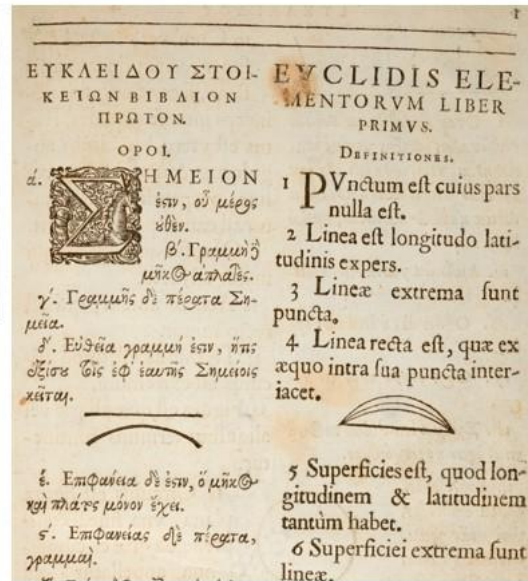 1
ΕΥΚΛΕΙΔΟΥ ΣΤΟΙ-
ΚΕΙΩΝ ΒΙΒΛΙΟΝ
ΠΡΩΤΟΝ.
ΟΡΟΙ.
ά. ΣΗΜΕΙΟΝ
ἐστιν, οὗ μέρος
οὐθέν.
β΄. Γραμμὴ δὲ
μῆκος ἀπλατές.
γ΄. Γραμμῆς δὲ πέρατα Ση-
μεῖα.
δ΄. Εὐθεῖα γραμμή ἐστιν, ἥτις
ἐξίσου τοῖς ἐφ᾽ ἑαυτῆς Σημείοις
κεῖται.
έ. Ἐπιφάνεια δέ ἐστιν, ὃ μῆκος
καὶ πλάτος μόνον ἔχει.
ς΄. Ἐπιφανείας δὲ πέρατα,
γραμμαί.
EVCLIDIS ELE-
MENTORVM LIBER
PRIMVS.
DEFINITIONES.
1 PVnctum eſt cuius pars
nulla eſt.
2 Linea eſt longitudo lati-
tudinis expers.
3 Lineæ extrema ſunt
puncta.
4 Linea recta eſt, quæ ex
æquo intra ſua puncta inter-
iacet.
5 Superficies eſt, quod lon-
gitudinem & latitudinem
tantùm habet.
6 Superficiei extrema ſunt
lineæ.